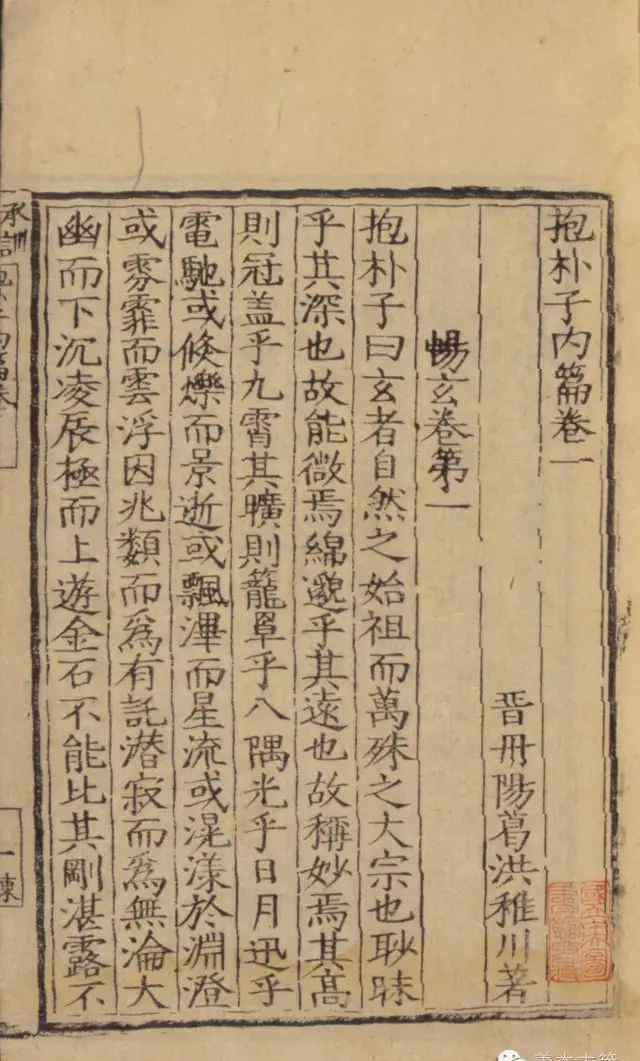 抱朴子内篇卷一
晉冊陽葛洪稚川著
暢玄卷第一
抱朴子曰玄者自然之始祖而萬殊之大宗也眇昧
乎其深也故能微焉綿邈乎其遠也故稱妙焉其髙
則冠盖乎九霄其曠則籠罩乎八隅光乎日月迅乎
電馳或倏爍而景逝或飄滭而星流或滉漾於淵澄
或雰霏而雲浮因兆類而爲有託潜寂而爲無淪大
幽而下沉凌辰極而上遊金石不能比其剛湛露不
承訓
一